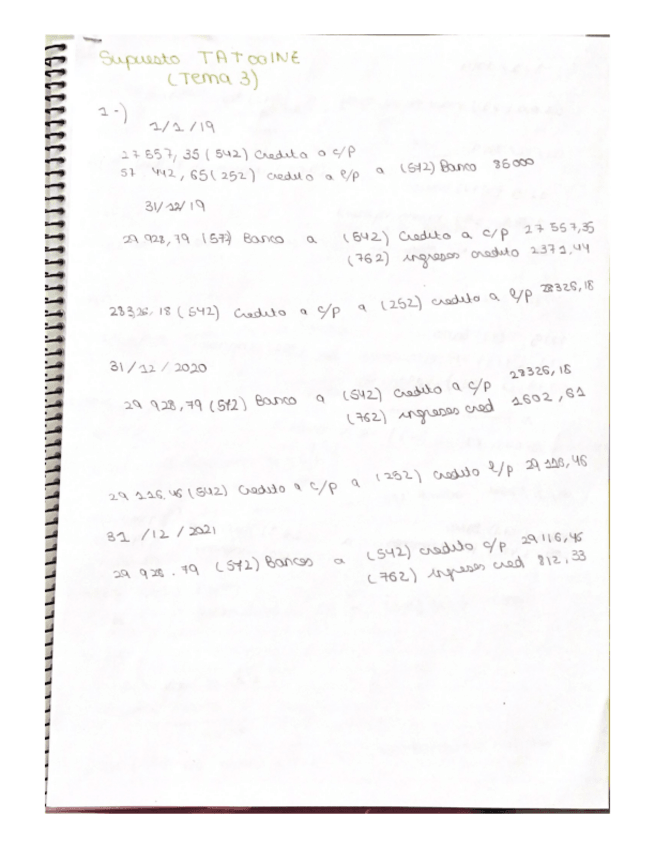 Supuesto TATOOINE
(Tema 3)
1.-)
1/1/19
27557,35 (542) Credito a c/p
57 442,65 (252) credito a l/p a (572) Banco 85000
31/12/19
29 928,79 (572) Banco a (542) Credito a c/p 27 557,35
(762) ingresos credito 2371,44
28326,18 (542) Credito a c/p a (252) credito a l/p 28326,18
31/12/2020
29 928,79 (572) Banco a (542) Credito a c/p 28326,18
(762) ingresos cred 1602,61
29 116,46 (542) Credito a c/p a (252) credito l/p 29 116,46
31/12/2021
29 928.79 (572) Bancos a (542) credito c/p 29116,46
(762) ingresos cred 812,33